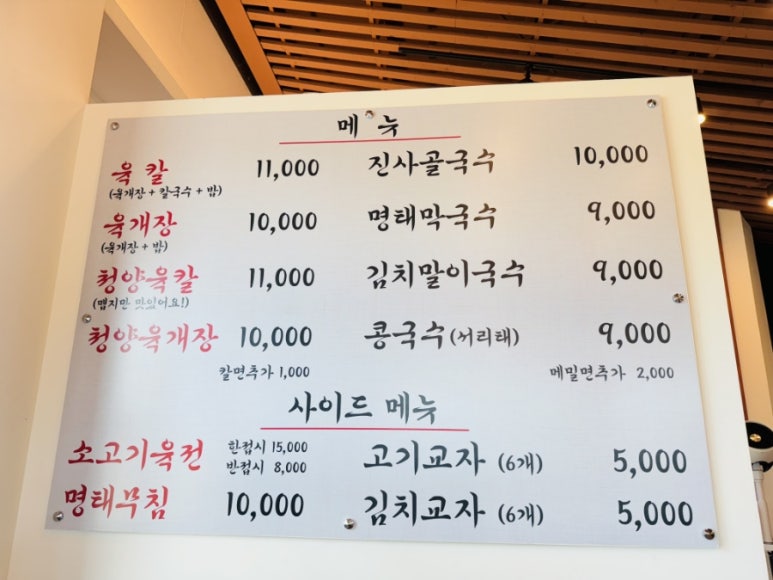 메 뉴
육 칼 11,000 진사골국수 10,000
(육개장 + 칼국수 + 밥)
육개장 10,000 명태막국수 9,000
(육개장 + 밥)
청양육칼 11,000 김치말이국수 9,000
(맵지만 맛있어요!)
청양육개장 10,000 콩국수 (서리태) 9,000
칼면추가 1,000 메밀면추가 2,000
사이드 메뉴
소고기육전 한접시 15,000 고기교자 (6개) 5,000
반접시 8,000
명태무침 10,000 김치교자 (6개) 5,000